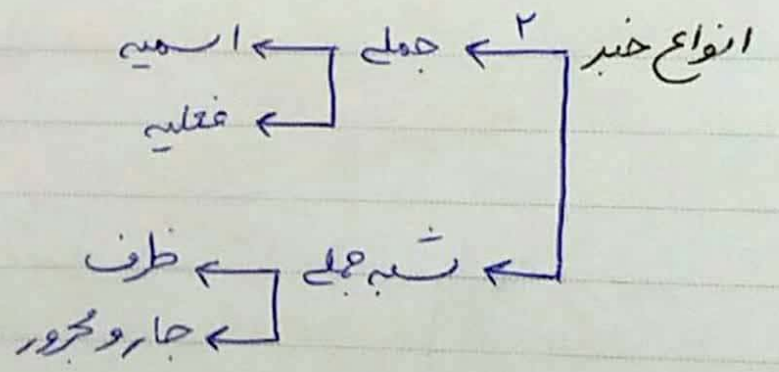 انواع خبر ۲ ← جملے ← اسمیہ
← فعلیہ
← شبہ جملے ← ظرف
← جار و مجرور